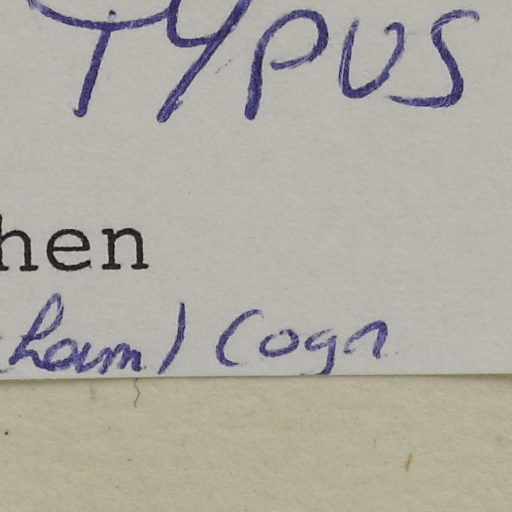 TYPUS
hen
cham) Cogn